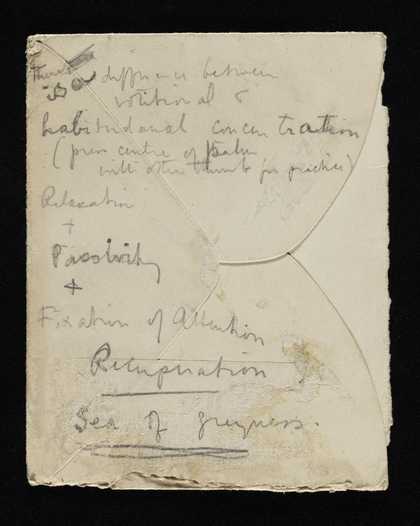 There
is a difference between
volitional &
habitudanal concentration
(press centre of palm
with other thumb for practice)
Relaxation
+
Passivity
+
Fixation of Attention
Recuperation
Sea of greyness.